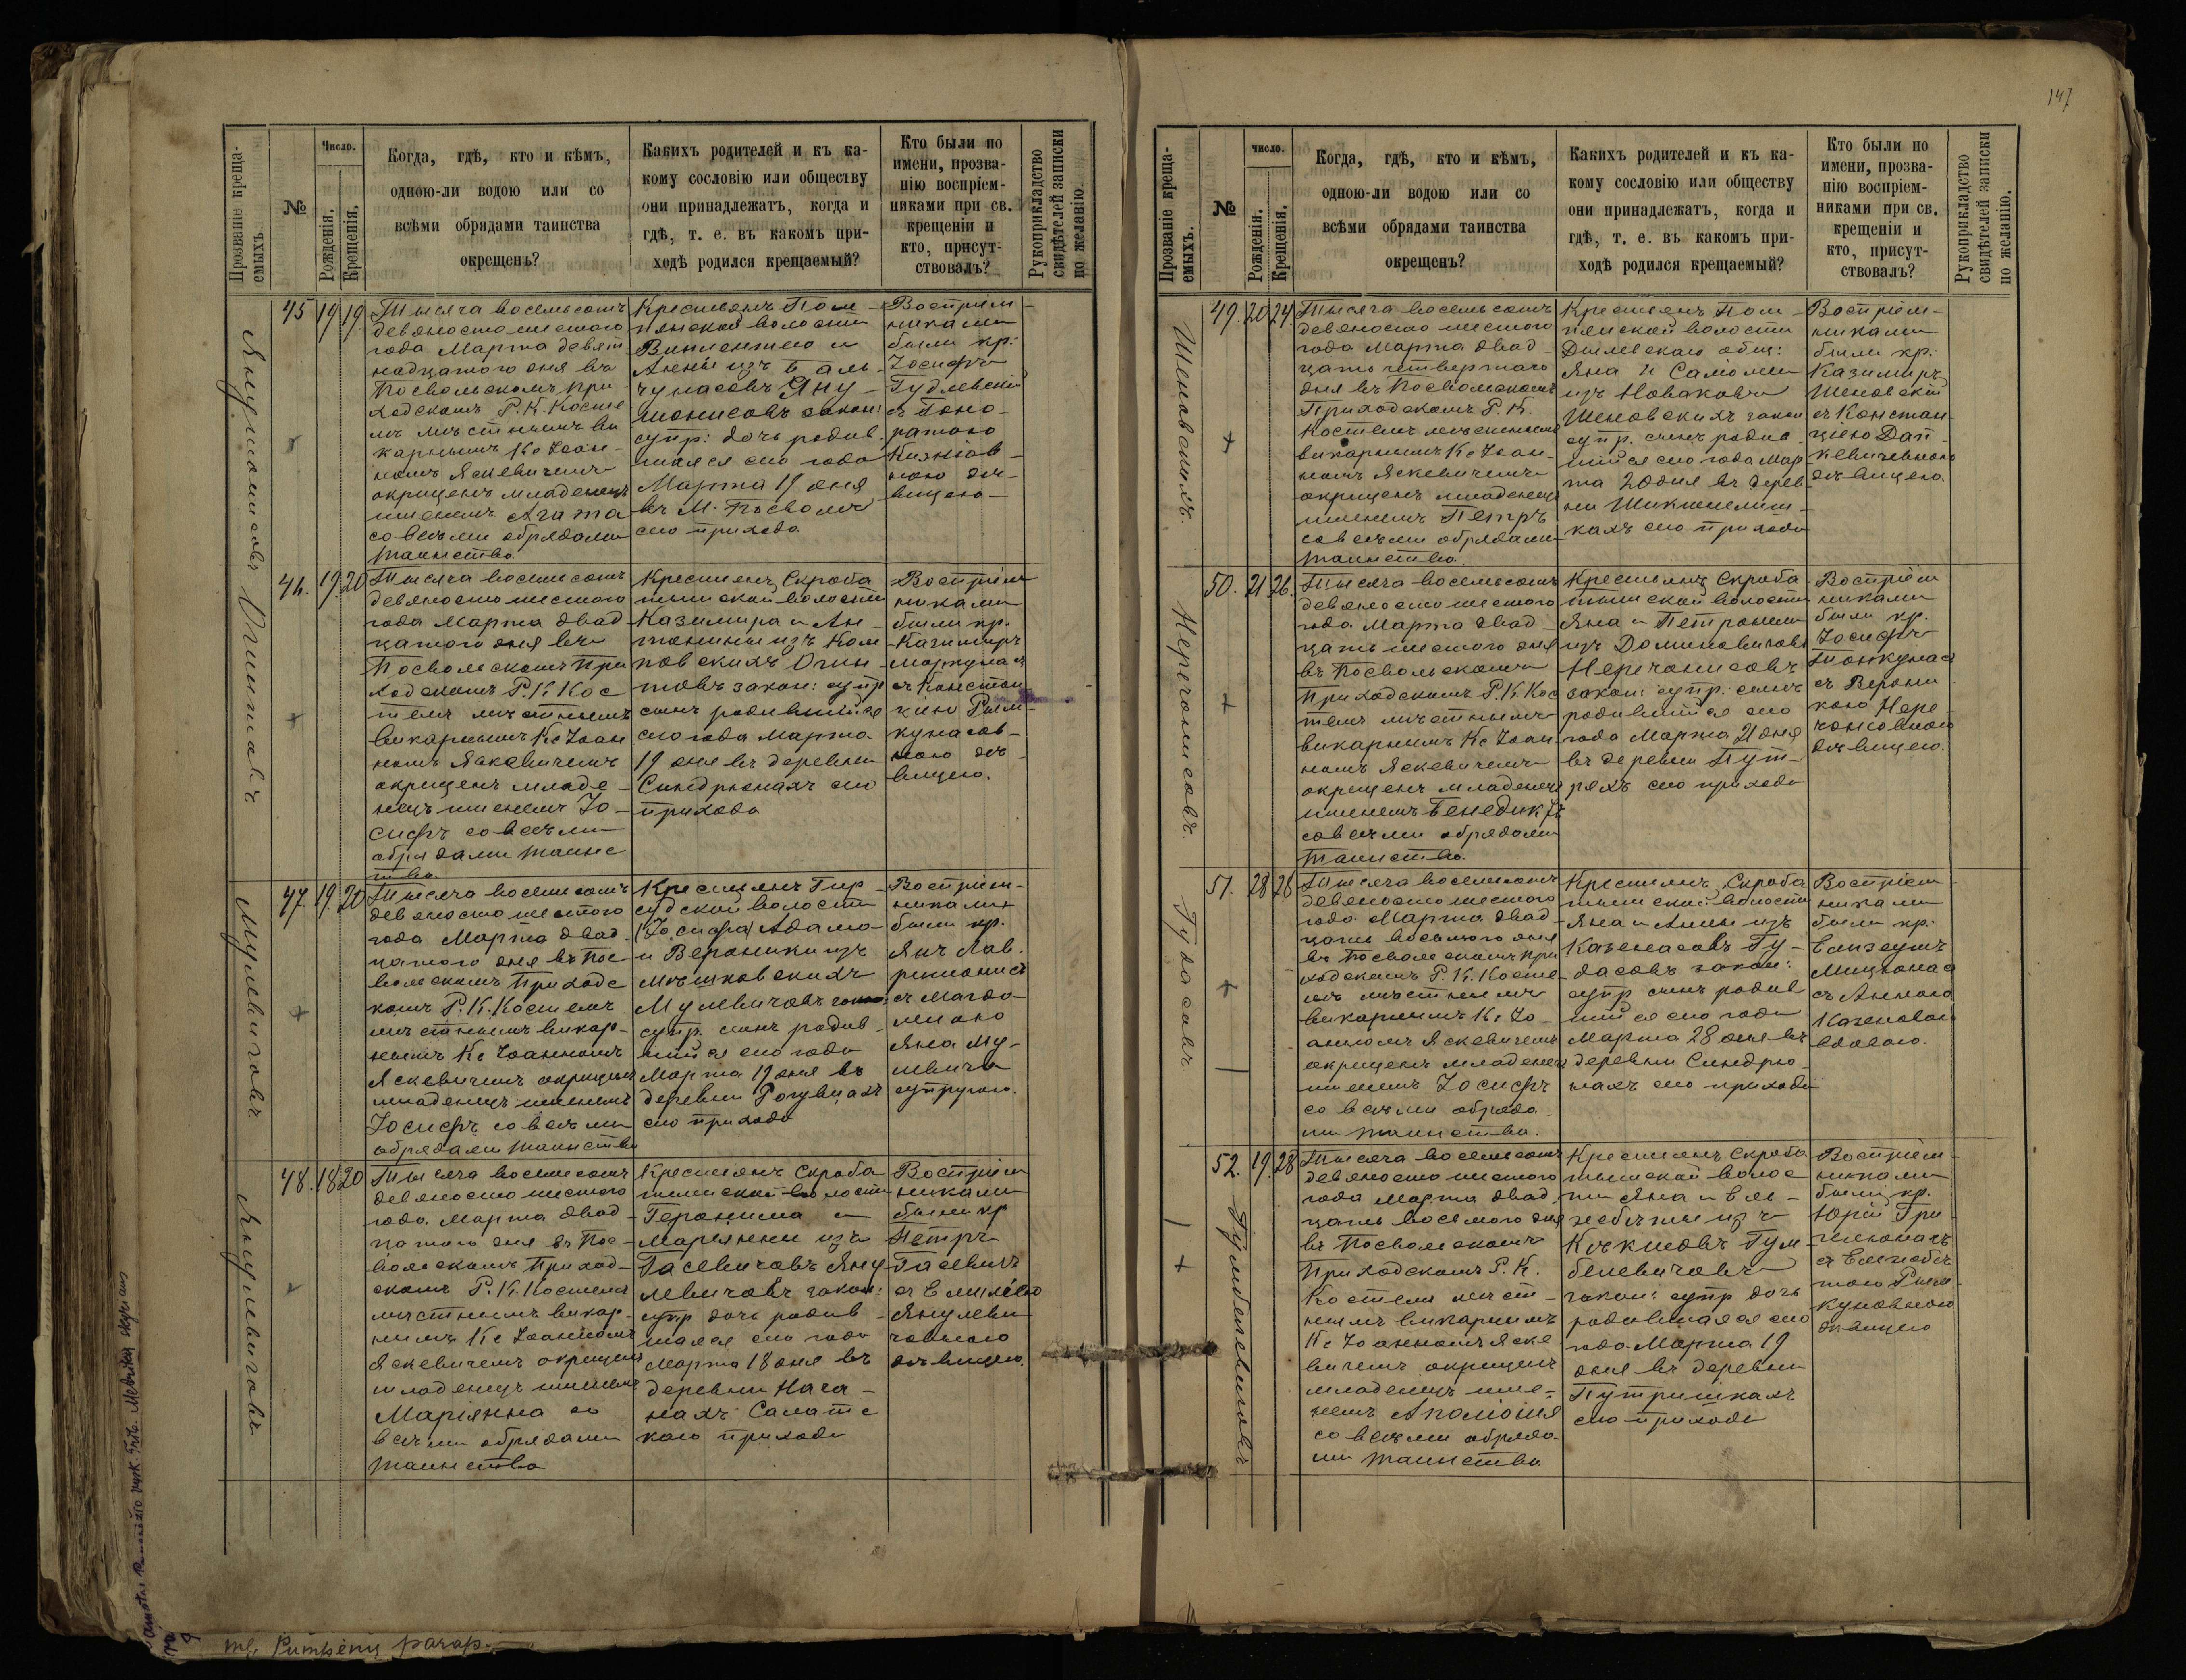 147
Прозваніе креща-
емыхъ.
№
Число.
Рожденія.
Крещенія.
Когда, гдѣ, кто и кѣмъ,
одною-ли водою или со
всѣми обрядами таинства
окрещенъ?
Какихъ родителей и къ ка-
кому сословію или обществу
они принадлежатъ, когда и
гдѣ, т. е. въ какомъ при-
ходѣ родился крещаемый?
Кто были по
имени, прозва-
нію воспріем-
никами при св.
крещеніи и
кто, присут-
ствовалъ?
Рукоприкладство
свидѣтелей записки
по желанію
45 19 19
Тысяча восемьсотъ
девяносто шестого
года Марта девят
надцатого дня въ
Посвольскомъ при
ходскомъ Р. К. Косте
лѣ мѣстнымъ ви
карнымъ Кс Іоан-
номъ Яскевичемъ
окрещенъ младенецъ
именемъ Агата
со всѣми обрядами
таинства
Крестьянъ Пом
пянской волости
Викентія и
Анны изъ
законн:
супр: дочь родив
шаяся сего года
Марта 19 дня
въ М. Посволѣ
сего прихода
Воспріем
никами
были кр:
Іосифъ
Гудлевскій
съ
вицею
46. 19. 20
Огинтовъ
Тысяча восемьсотъ
девяносто шестого
года Марта двад
цатого дня въ
Посвольскомъ При
ходскомъ Р. К. Кос
телѣ мѣстнымъ
викарнымъ Кс Іоан
номъ Яскевичемъ
окрещенъ младе
нецъ именемъ Іо-
сифъ со всѣми
обрядами таинс
тва
Крестьянъ Скроба
тышской волости
Казимира и Ан-
тонины изъ Ком
повскихъ Огин
товъ закон: супр
сынъ родившійся
сего года Марта
19 дня въ деревни
Синдріонахъ сего
прихода
Воспріем
никами
были кр.
Казимиръ
Маркунас
съ Констан
цію Рым
кунасов-
ною дѣ
вицею.
47. 19. 20
Мулевичовъ
Тысяча восемьсотъ
девяносто шестого
года Марта двад
цатого дня въ Пос-
вольскомъ Приходс
комъ Р. К. Костелѣ
мѣстнымъ викар-
нымъ Кс Іоанномъ
Яскевичемъ окрещенъ
младенецъ именемъ
Іосифъ со всѣми
обрядами таинства
Крестьянъ Гир
судской волости
(Іосифа) Адама
и Вероники изъ
Мѣшковскихъ
Мулевичовъ закон
супр. сынъ родив
шійся сего года
Марта 19 дня въ
деревни Рогувцахъ
сего прихода
Воспріем-
никами
были кр.
Янъ Лав
съ Магда
леною
Яна Му-
левича
супругою.
48. 18 20
Янулевичовъ
Тысяча восемьсотъ
девяносто шестого
года Марта двад
цатого дня въ Пос-
вольскомъ Приход-
скомъ Р. К. Костелѣ
мѣстнымъ викар-
нымъ Кс Іоанномъ
Яскевичемъ окрещенъ
младенецъ именемъ
Маріянна со
всѣми обрядами
таинства
Крестьянъ Скроба
тышской волости
Геронима и
Марьянны изъ
Гасевичовъ Яну
левичовъ закон:
супр дочь родив
шаяся сего года
Марта 18 дня въ
деревни Нача-
нахъ Салатс
кого прихода
Воспріем
никами
были кр
Петръ
Гасевичъ
съ Емиліею
Янулеви
човною
дѣвицею.
Прозваніе креща-
емыхъ.
№
число.
Рожденія.
Крещенія.
Когда, гдѣ, кто и кѣмъ,
одною-ли водою или со
всѣми обрядами таинства
окрещенъ?
Какихъ родителей и къ ка-
кому сословію или обществу
они принадлежатъ, когда и
гдѣ, т. е. въ какомъ при-
ходѣ родился крещаемый?
Кто были по
имени, прозва-
нію воспріем-
никами при св.
крещеніи и
кто, присут-
ствовалъ?
Рукоприкладство
свидѣтелей записки
по желанію.
49. 20 24.
Шеновскихъ.
Тысяча восемьсотъ
девяносто шестого
года Марта двад
цать четвертого
дня въ Посвольскомъ
Приходскомъ Р. К.
Костелѣ мѣстнымъ
викарнымъ Кс Іоан-
номъ Яскевичемъ
окрещенъ младенецъ
именемъ Петръ
со всѣми обрядами
таинства.
Крестьянъ Пом-
пянской волости
общ:
Яна и Саломеи
изъ Новаковъ
Шеновскихъ закон
супр. сынъ родив
шійся сего года Мар
та 20 дня въ дерев
ни
кахъ сего прихода
Воспріем-
никами
были кр.
Казимиръ
Шеновскій
съ Констан
ціею Дап
кевичевною
дѣвицею.
50. 21 26.
Нерчонисовъ.
Тысяча восемьсотъ
девяносто шестого
года Марта двад
цать шестого дня
въ Посвольскомъ
Приходскомъ Р. К. Кос
телѣ мѣстнымъ
викарнымъ Кс Іоан
номъ Яскевичемъ
окрещенъ младенецъ
именемъ Бенедиктъ
со всѣми обрядами
таинства.
Крестьянъ Скроба
тышской волости
Яна и Петронели
изъ Доминовичовъ
Нерчонисовъ
закон: супр: сынъ
родившійся сего
года Марта 21 дня
въ деревни Пут-
ряхъ сего прихода
Воспріем
никами
были кр.
Іосифъ
Тонкунас
съ Верони
кою Нер
чонсовною
дѣвицею.
51. 28 28
Гудасовъ
Тысяча восемьсотъ
девяносто шестого
года Марта двад
цать восьмого дня
въ Посвольскомъ При
ходскомъ Р. К. Косте
лѣ мѣстнымъ
викарнымъ Кс Іо-
анномъ Яскевичемъ
окрещенъ младенецъ
именемъ Іосифъ
со всѣми обряда
ми таинства.
Крестьянъ Скроба
тышской волости
Яна и Анны изъ
Казенасовъ Гу-
дасовъ закон:
супр сынъ родив
шійся сего года
Марта 28 дня въ
деревни Синдріо
нахъ сего прихода
Воспріем
никами
были кр.
Мицюнас
съ Анною
Казеновою
вдовою.
52. 19. 28
Гумбелевичовъ
Тысяча восемьсотъ
девяносто шестого
года Марта двад
цать восьмого дня
въ Посвольскомъ
Приходскомъ Р. К.
Костелѣ мѣст-
нымъ викарнымъ
Кс Іоанномъ Яске
вичемъ окрещенъ
младенецъ име-
немъ Аполіонія
со всѣми обряда
ми таинства
Крестьянъ Скроба
тышской волос
ти Яна и Ель-
жбѣты изъ
Гум
белевичовъ
закон: супр дочь
родившаяся сего
года Марта 19
дня въ деревни
Путришкахъ
сего прихода
Воспріем
никами
были кр.
Юрій Гри
съ Ельжбѣ
тою Рым
куновною
дѣвицею
mg. Pumpėnų parap.